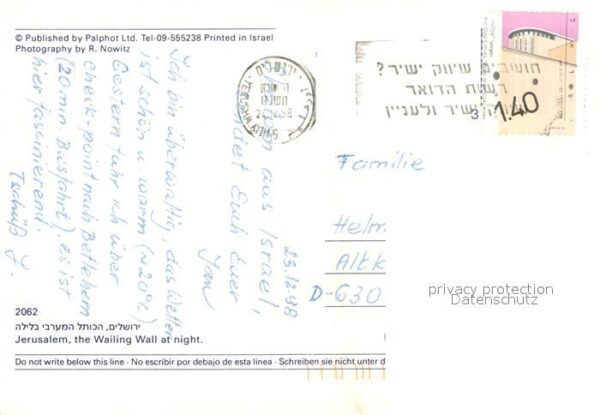 © Published by Palphot Ltd. Tel-09-555238 Printed in Israel
Photography by R. Nowitz
aus Israel,
Euch Euer
Jan
23.12.98
Ich bin überwältigt, das Wetter
ist schön u warm (~20°C)
Gestern fuhr ich über
check-point nach Betlehem
(20min Busfahrt). es ist
hier faszinierend.
Tschüß J.
ירושלים
JERUSALEM
חושבים שיווק ישיר?
רשות הדואר
ישיר ולעניין
1.40
3
Familie
Helm
Altk
D-630
privacy protection
Datenschutz
2062
ירושלים, הכותל המערבי בלילה
Jerusalem, the Wailing Wall at night.
Do not write below this line · No escribir por debajo de esta linea · Schreiben sie nicht unter d